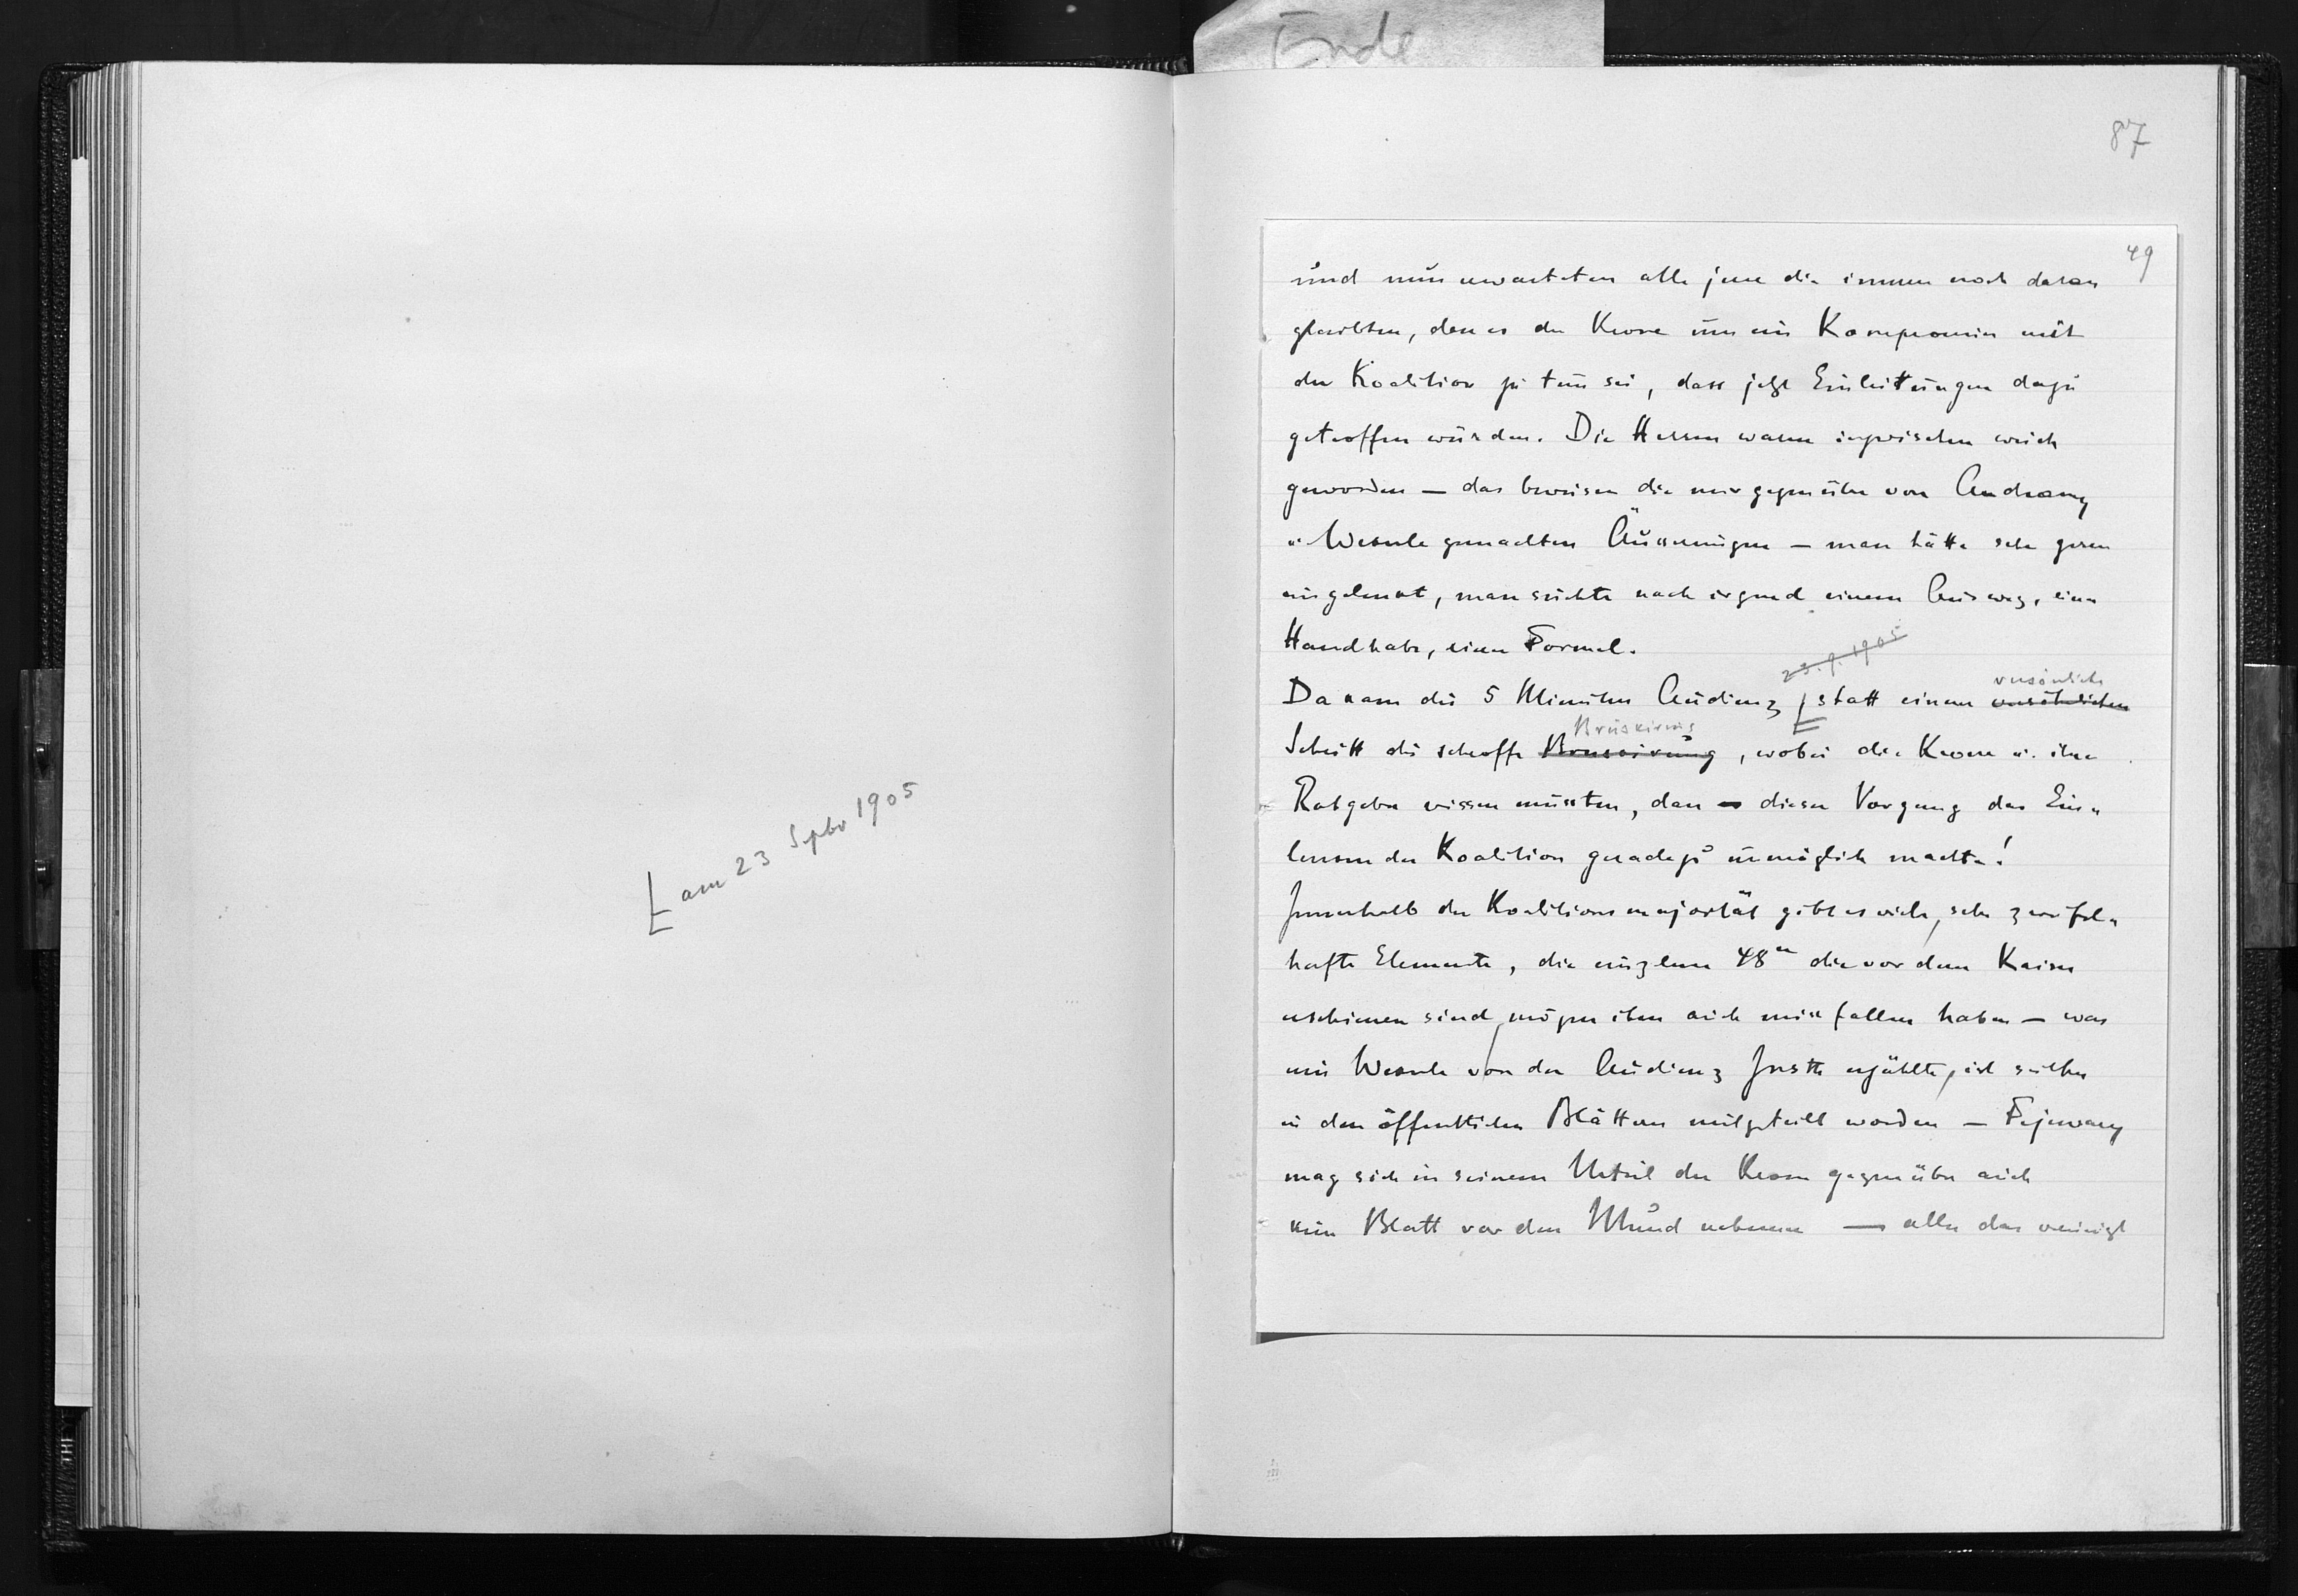 Ende
87
[ am 23 Septbr 1905
49
und nun erwarteten alle jene die immer noch daran
glaubten, dass es der Krone um ein Kompromiss mit
der Koalition zu tun sei, dass jetzt Einleitungen dazu
getroffen würden. Die Herren waren inzwischen weich
geworden — das beweisen die mir gegenüber von Andrassy
u. Wekerle gemachten Äusserungen — man hätte sehr gerne
eingelenkt, man suchte nach irgend einem Ausweg, einer
Handhabe, einer Formel.
23.9.1905
versönlichen
Da kam die 5 Minuten Audienz [ statt einem versöhnlichen
Brüskirung
Schritt die schroffe Bruskirung, wobei die Krone u. ihre
Ratgeber wissen mussten, dass dieser Vorgang das Ein-
lenken der Koalition geradezu unmöglich machte!
Innerhalb der Koalitionsmajorität gibt es viele, sehr zweifel-
hafte Elemente, die einzelnen 48er die vor dem Kaiser
erschienen sind, mögen ihm auch missfallen haben — was
mir Wekerle von der Audienz Justh erzählte, ist seither
in den öffentlichen Blättern mitgeteilt worden — Fejervary
mag sich in seinem Urteil der Krone gegenüber auch
kein Blatt vor den Mund nehmen — alles das vereinigt